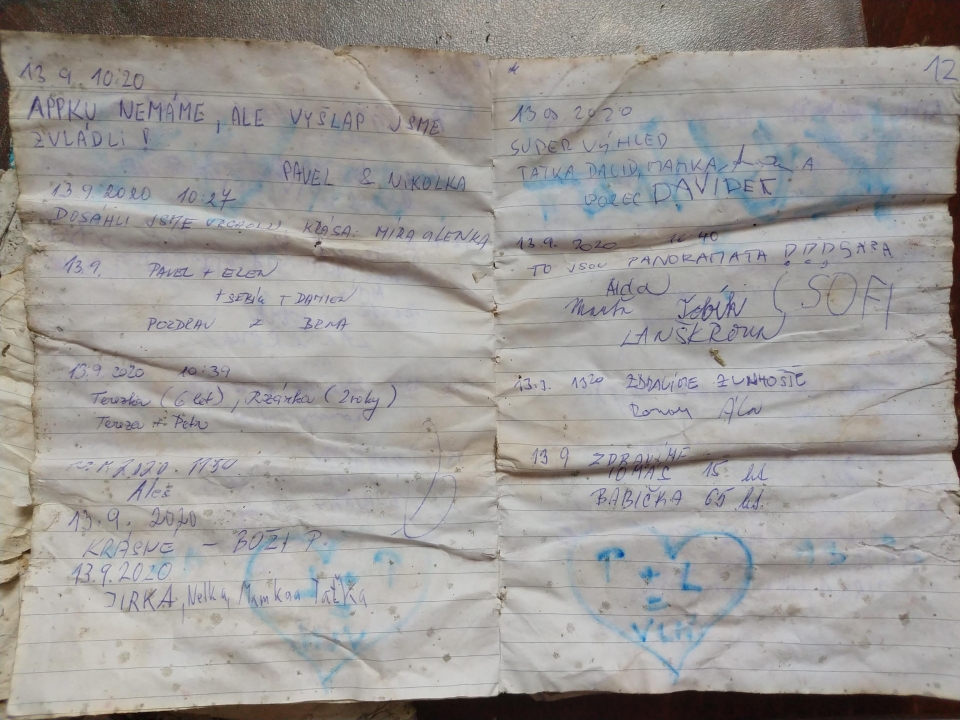 13 9. 10:20
APPKU NEMÁME, ALE VÝŠLAP JSME
ZVLÁDLI!
PAVEL & NIKOLKA
13 9 2020 10:27
DOSÁHLI JSME VRCHOLU. KRÁSA. MÍRA A LENKA
13.9. PAVEL + ELEN
+ DAMIEN
POZDRAV Z BRNA
13.9 2020 10:39
Terezka (6 let), Rozárka (2 roky)
Tereza + Petr
2020 1150
Aleš
13.9. 2020
KRÁSNE - BOŽÍ P.
13.9.2020
JIRKA, Nelka, Mamka a Taťka
12
13 09 2020
SUPER VÝHLED
TAŤKA DAVID, MAMKA
DAVÍDEK
13 9. 2020 40
TO JSOU PANORAMATA
Aida
SOFI
LANŠKROUN
13.9. 1320 ZDRAVÍME
13 9 ZDRAVÍME
TOMÁŠ 15 let
BABIČKA 65 let
T + L
=